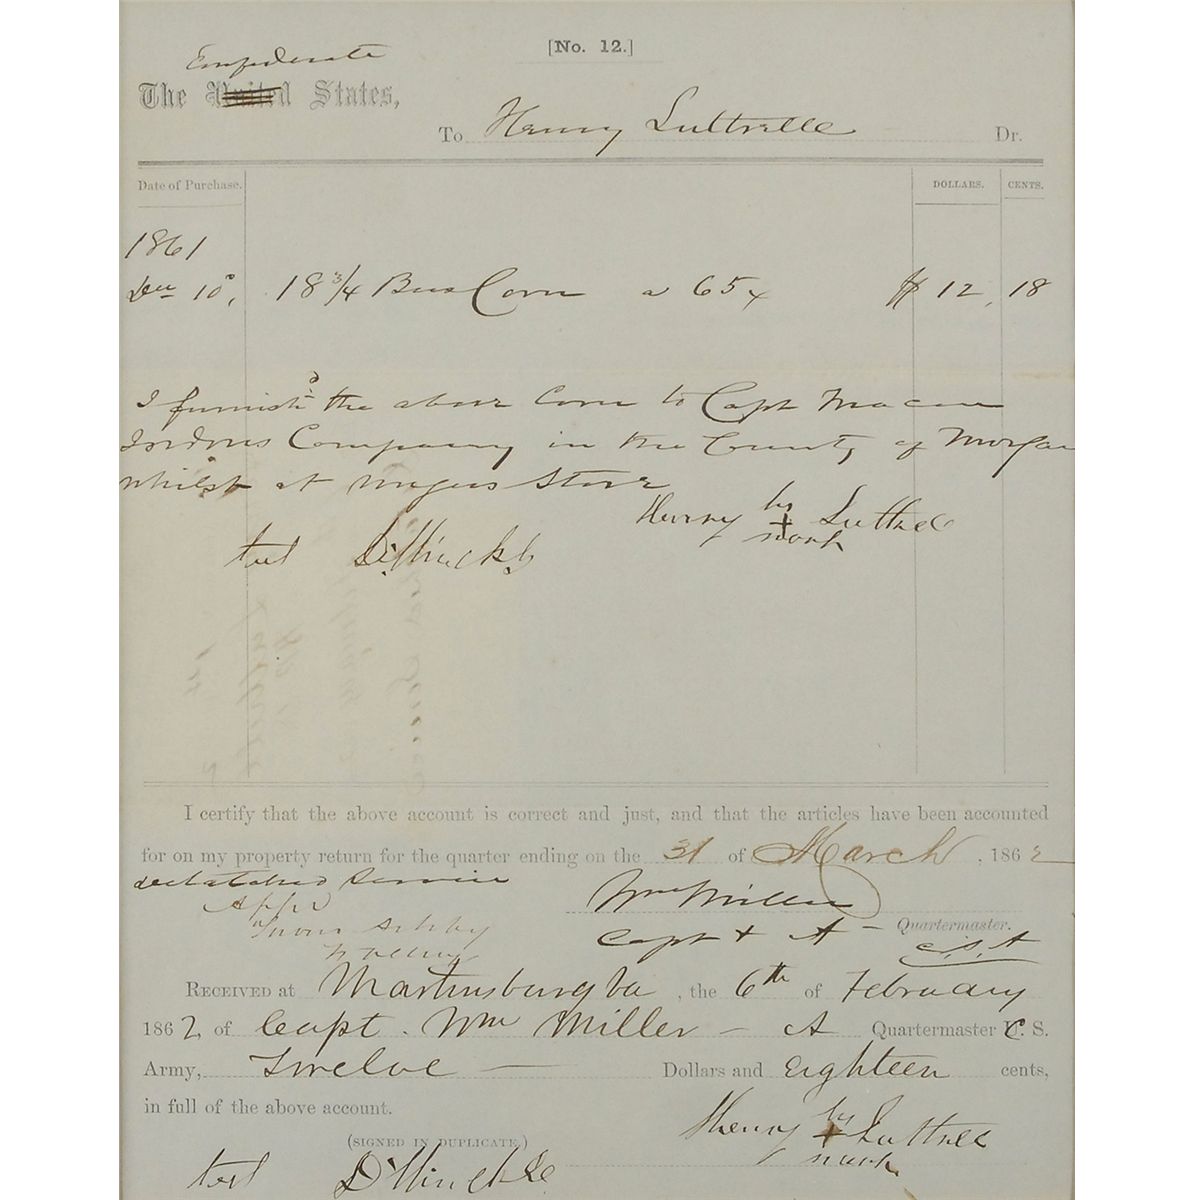 [No. 12.]
Confederate
The United States,
To Henry Luttrelle Dr.
Date of Purchase. DOLLARS. CENTS.
1861
Dec 10, 18 3/4 Bus Corn a 65 $ 12, 18
I furnishd the above Corn to Capt Macon
Company in the County of Morgan
whilst at Store
Henry his + mark Luttrell
test
I certify that the above account is correct and just, and that the articles have been accounted
for on my property return for the quarter ending on the 31 of March, 1862
Service
Wm Miller
Ashby
Capt & A - Quartermaster.
C.S.A
RECEIVED at Martinsburg Va, the 6th of February
1862, of Capt. Wm Miller - A Quartermaster C. S.
Army, Twelve Dollars and Eighteen cents,
in full of the above account.
Henry his + mark Luttrell
(SIGNED IN DUPLICATE.)
test